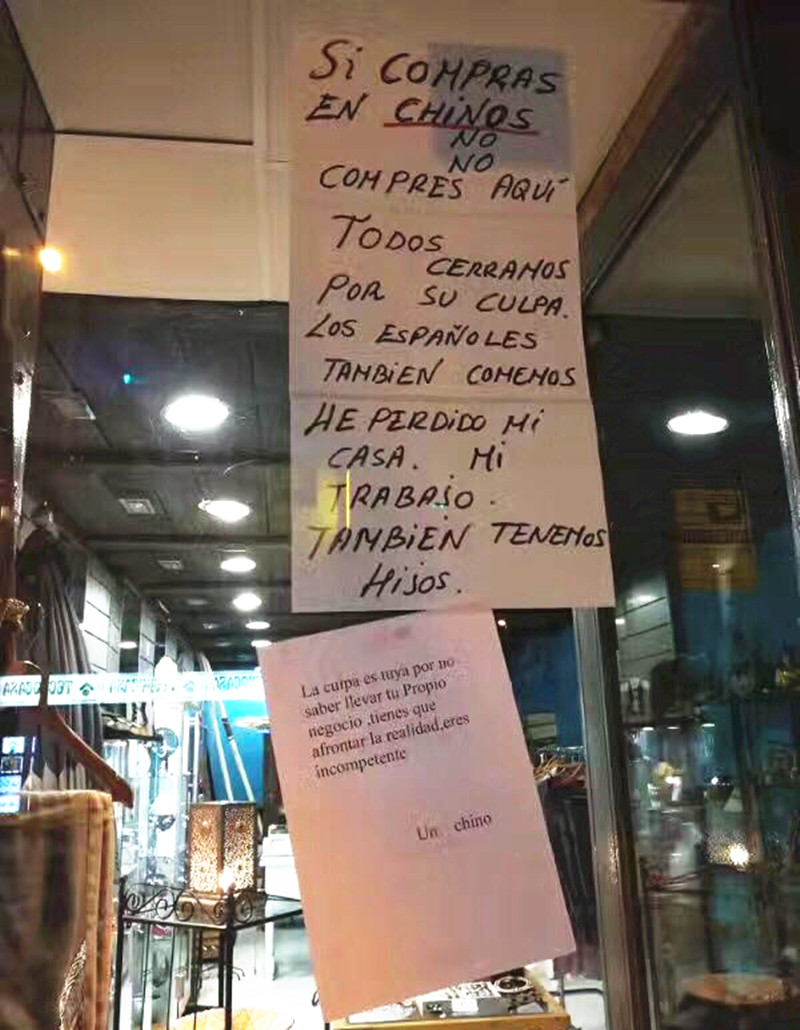 Si COMPRAS
EN CHINOS
NO
NO
COMPRES AQUÍ
TODOS
CERRAMOS
POR SU CULPA.
LOS ESPAÑOLES
TAMBIEN COMEMOS
HE PERDIDO Mi
CASA. Mi
TRABAJO.
TAMBIEN TENEMOS
HiJOS.
La culpa es tuya por no
saber llevar tu Propio
negocio ,tienes que
afrontar la realidad,eres
incompetente
Un chino